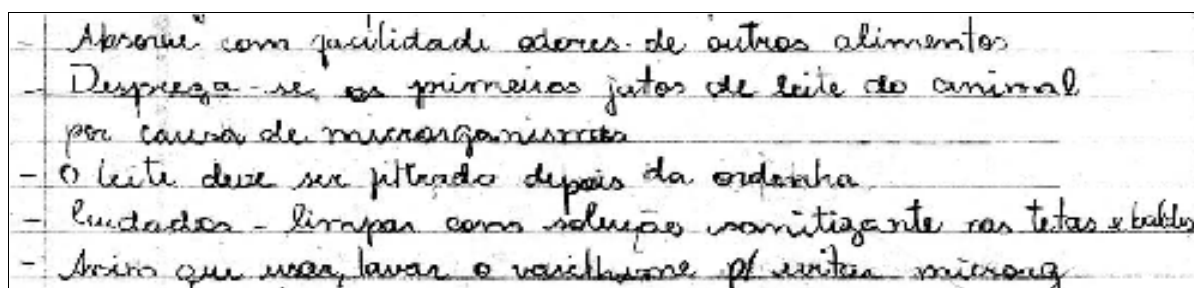 - Absorve com facilidade odores de outros alimentos
- Despreza-se os primeiros jatos de leite do animal
por causa de microrganismos
- O leite deve ser filtrado depois da ordenha
- Cuidados - limpar com solução sanitizante nas tetas e baldes
- Assim que usar, lavar o vasilhame p/ evitar microrg